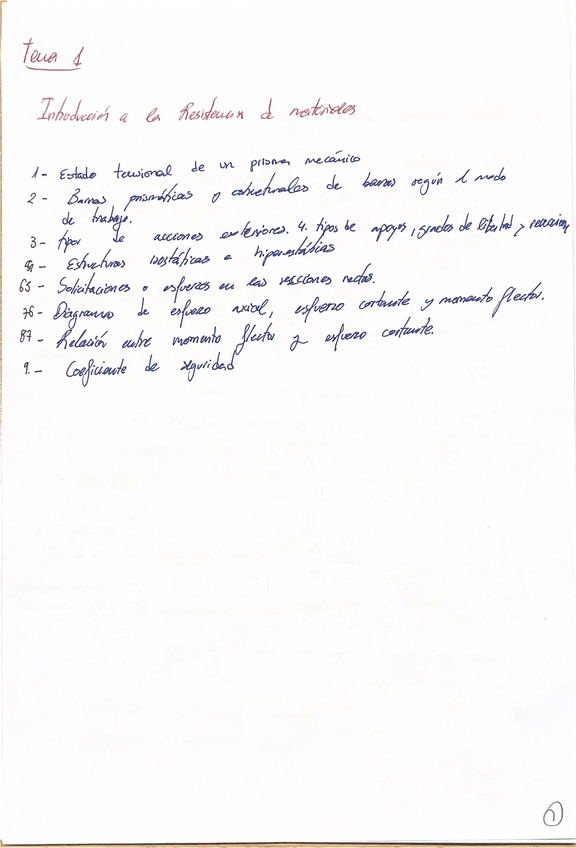 Tema 1
Introducción a la Resistencia de materiales
1- Estado tensional de un prisma mecánico
2- Barras prismáticas o estructurales de barras según el modo
de trabajo.
3- tipos de acciones exteriores. 4. tipos de apoyos, grados de libertad y reacciones
- Estructuras isostáticas e hiperestáticas
65- Solicitaciones o esfuerzos en las secciones rectas.
76- Diagramas de esfuerzo axial, esfuerzo cortante y momento flector.
87- Relación entre momento flector y esfuerzo cortante.
9.- Coeficiente de seguridad
1